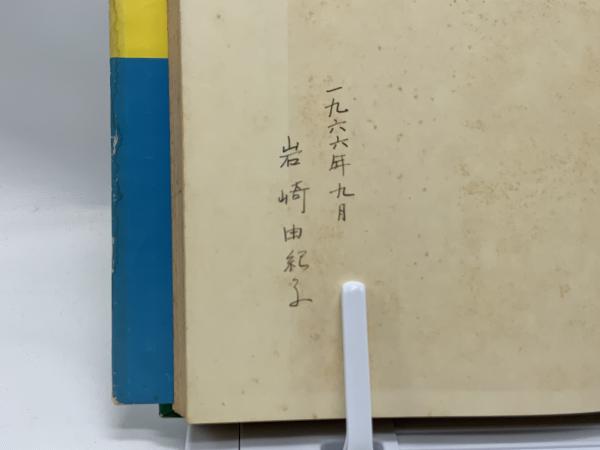 一九六六年九月
岩崎由紀子